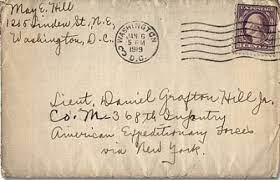 May E. Hill
1215 Linden St, N.E,
Washington, D.C.
WASHINGTON
D.C.
JAN 6
5 PM
1919
Lieut. Daniel Grafton Hill Jr.
Co. M- 368th Infantry
American Expeditionary Forces
via New York.